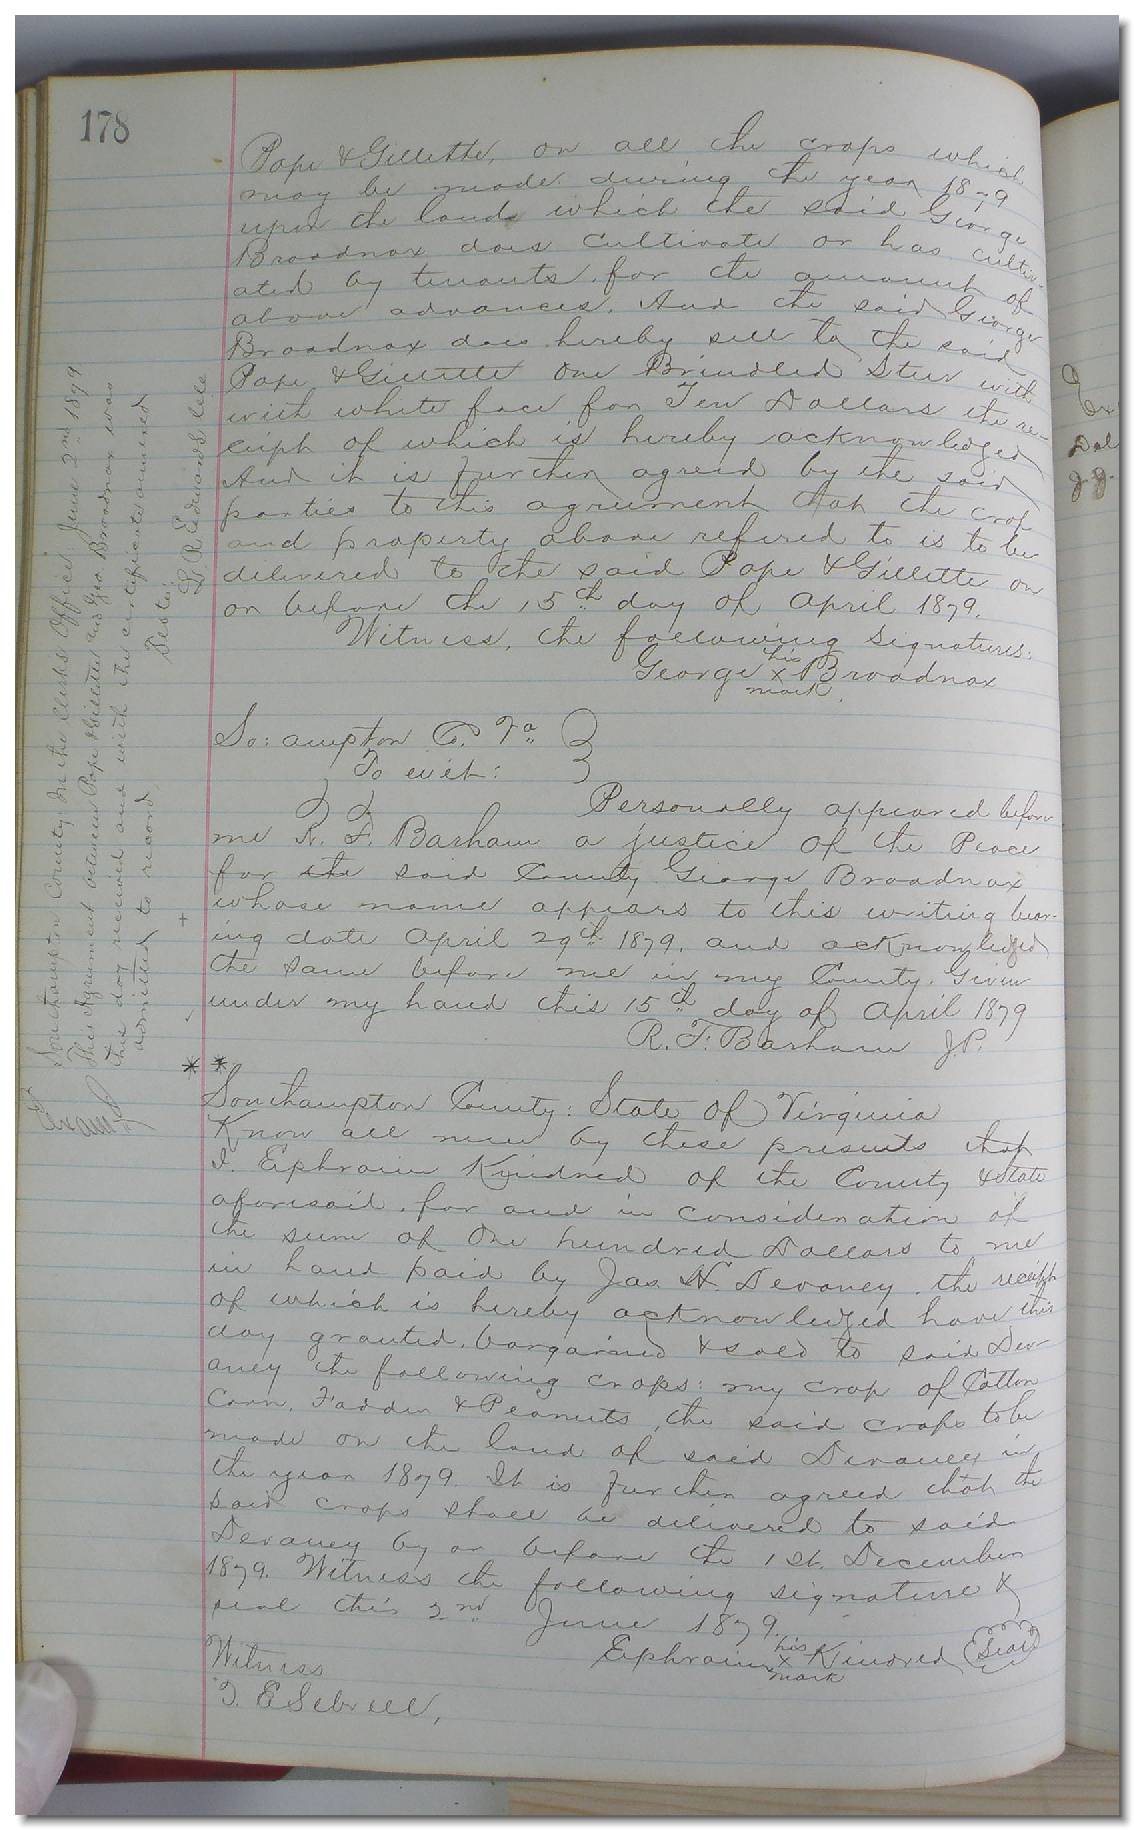 178
Pope & Gillette, on all the crops which
may be made during the year 1879
upon the lands which the said George
Broadnax does cultivate or has cultiv-
ated by tenants for the amount of
above advances. And the said George
Broadnax does hereby sell to the said
Pope & Gillette One Brindled Steer with
with white face for Ten Dollars the re-
ceipt of which is hereby acknowledged
And it is further agreed by the said
parties to this agreement that the crop
and property above refered to is to be
delivered to the said Pope & Gillette on
or before the 15th day of April 1879.
Witness, the following signatures.
his
George x Broadnax
mark
So: ampton Co. Va
To wit:
Personally appeared before
me R. F. Barham a justice of the Peace
for the said County George Broadnax
whose name appears to this writing bear-
ing date April 29th 1879, and acknowledged
the same before me in my County. Given
under my hand this 15th day of April 1879
R. F. Barham J.P.
* *
Southampton County: State of Virginia
Know all men by these presents that
I. Ephraim Kindred of the County & State
aforesaid, for and in consideration of
the sum of One hundred Dollars to me
in hand paid by Jas. N. Devaney the receipt
of which is hereby acknowledged have this
day granted, bargained & sold to said Dev-
aney the following crops: my crop of Cotton
Corn, Fodder & Peanuts, the said crops to be
made on the land of said Devaney in
the year 1879. It is further agreed that the
said crops shall be delivered to said
Devaney by or before the 1st. December
1879. Witness the following signature &
seal this 2nd June 1879.
his
Ephraim x Kindred (Seal)
mark
Witness
T. E Sebrell,
Southampton County: In the Clerks Office: June 2nd 1879
This Agreement between Pope & Gillette and Geo. Broadnax was
this day received and with the certificate annexed
admitted to record,
Teste:
L. R. Edwards Clk
Exam'd